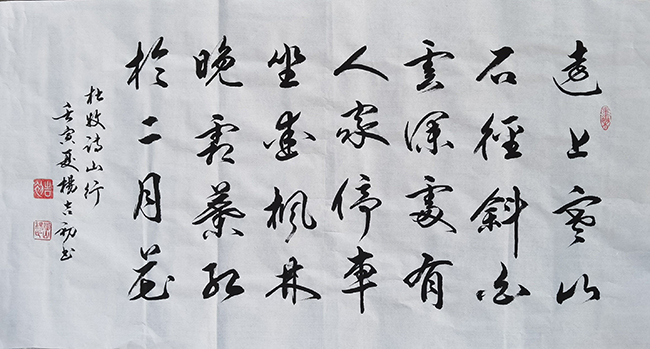 遠上寒山
石徑斜白
雲深處有
人家停車
坐愛楓林
晚霜葉紅
於二月花
杜牧詩山行
壬寅夏楊吉初书